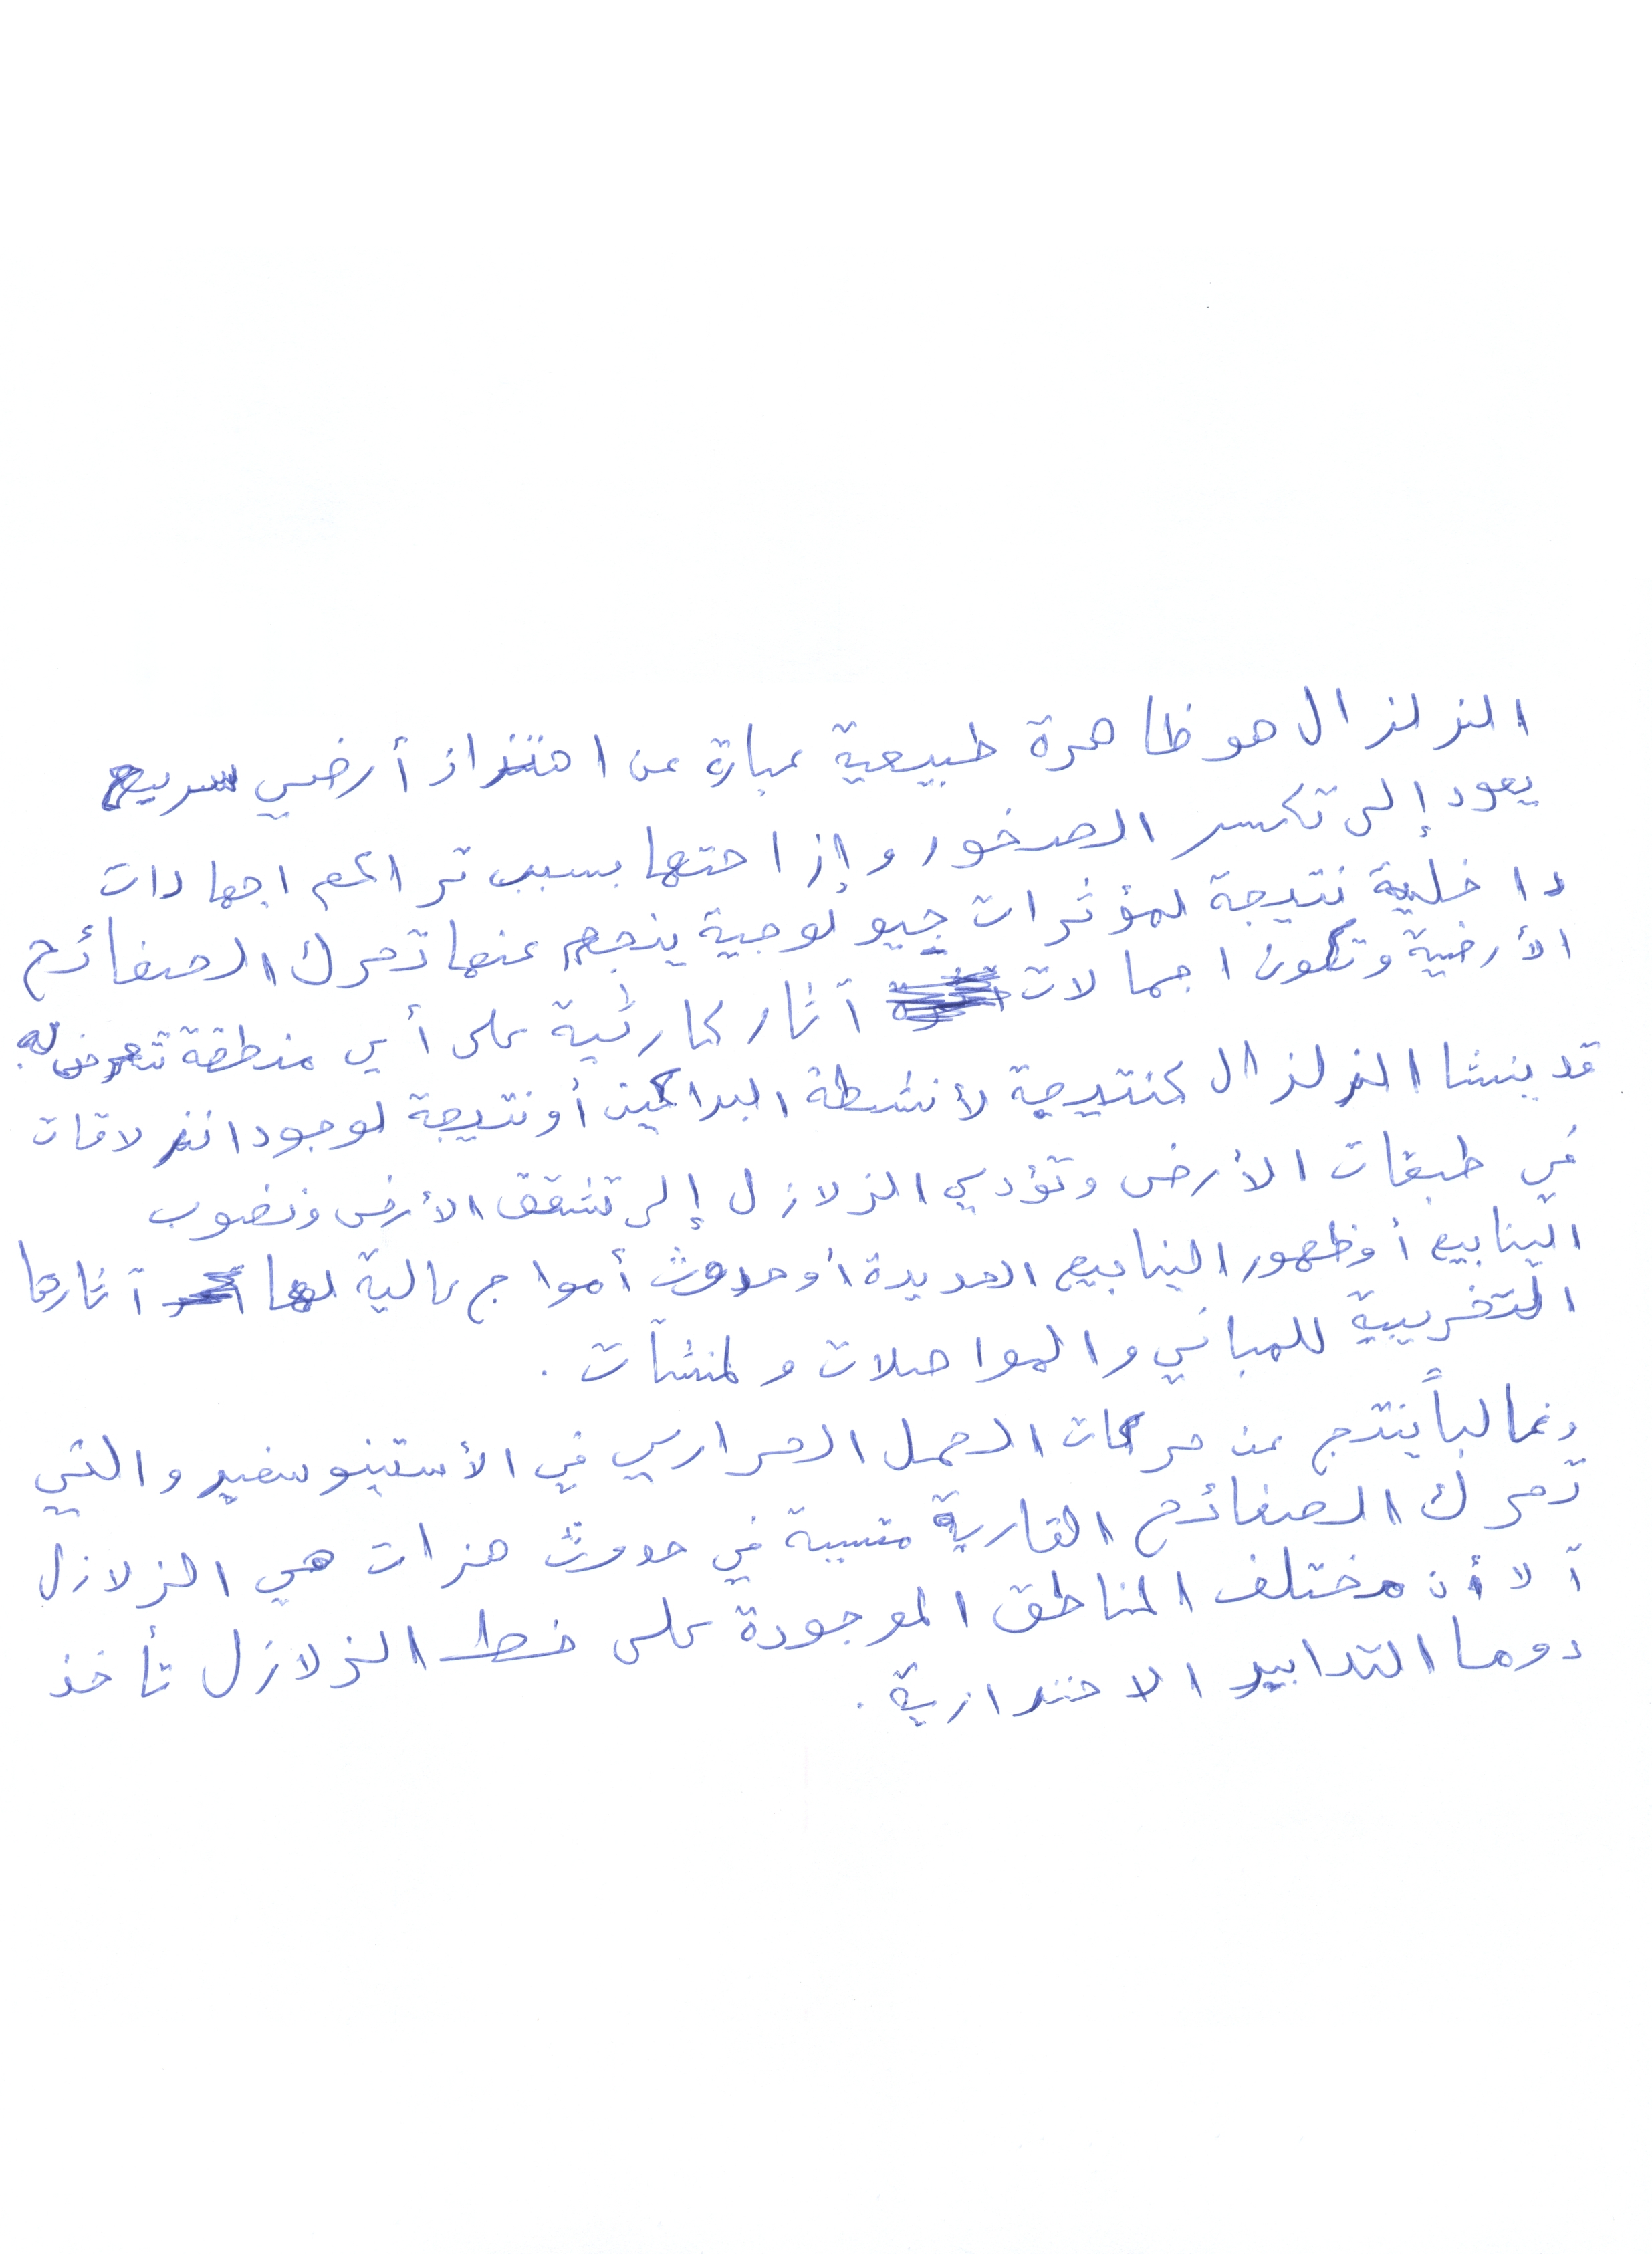 الزلزال هو ظاهرة طبيعية عبارة عن اهتزاز أرضي سريع
يعود إلى تكسر الصخور وإزاحتها بسبب تراكم اجهادات
داخلية نتيجة لمؤثرات جيولوجية ينجم عنها تحرك الصفائح
الأرضية وتكون اجمالات آثار كارثية على أي منطقة تتعرض له.
قد ينشا الزلزال كنتيجة لأنشطة البراكين أو نتيجة لوجود انزلاقات
في طبقات الأرض وتؤدي الزلازل إلى تشقق الأرض ونضوب
الينابيع أو ظهور الينابيع الجديدة أو حدوث أمواج عالية لها آثارها
التخريبية للمباني والمواصلات ولمنشآت.
وغالباً ينتج عن حركات الحمل الحراري في الأستينوسفير والتي
تحرك الصفائح القارية متسببة في حدوث هزات هي الزلازل
آلا أن مختلف المناطق الموجودة على خط الزلازل تأخذ
دوما التدابير الاحترازية.